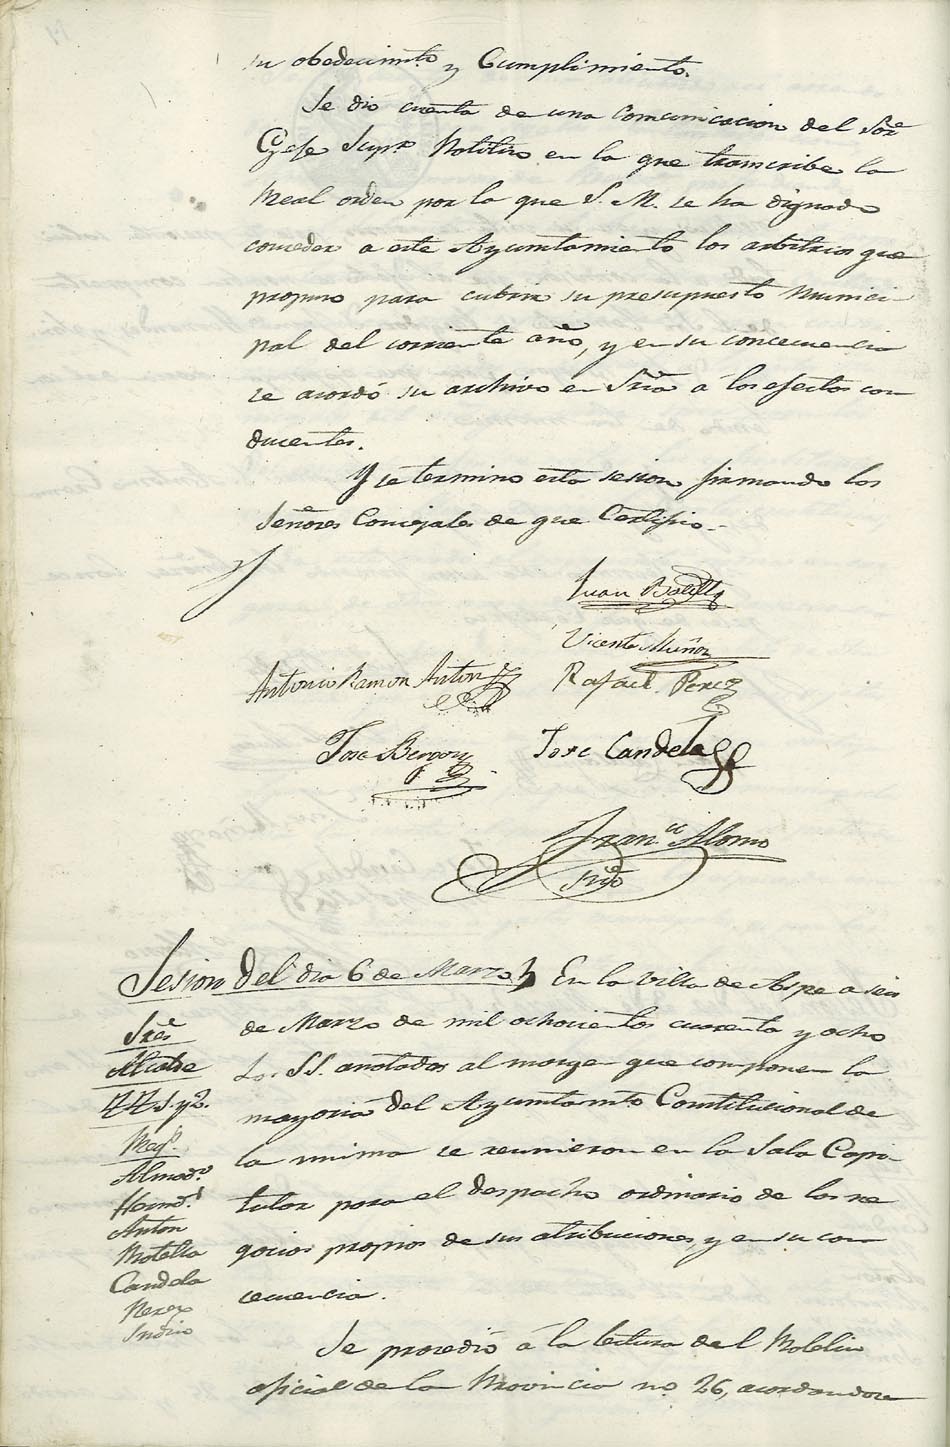 su obedecimto y Cumplimiento.
Se dió cuenta de una Comunicacion del Sor
Gefe Supr Politico en la que transcribe la
Real orden por la que S. M. se ha dignado
conceder a este Ayuntamiento los arbitrios que
propuso para cubrir su presupuesto Munici
pal del corriente año, y en su concecuencia
se acordó su archivo en Sria á los efectos con
ducentes.
Y se termino esta sesion firmando los
Señores Concejales de que Certifico.
Juan
Vicente Muñoz
Antonio Ramon Anton
Rafael Perez
Jose
Jose Candela
Franco Alonso
Srio
Sesion del dia 6 de Marzo
En la villa de Aspe a seis
de Marzo de mil ochocientos cuarenta y ocho
Los SS. anotados al margen que componen la
mayoria del Ayuntamto Constitucional de
la misma se reunieron en la Sala Capi
tular para el despacho ordinario de los ne
gocios propios de sus atribuciones, y en su con
cecuencia.
Sres
Alcalde
TT 1. y 2.
Reg.s
Almod.r
Hernd.z
Anton
Botella
Candela
Perez
Sindico
Se procedió á la lectura del Boletin
oficial de la Provincia no. 26, acordandose